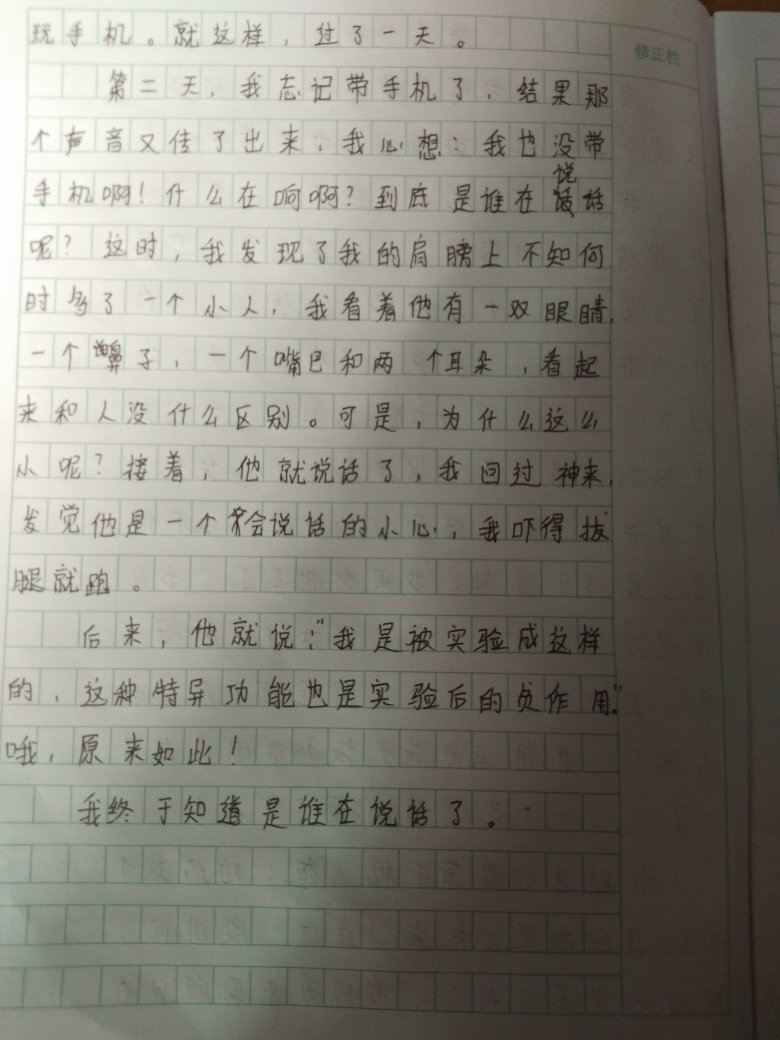 修正栏
玩手机。就这样，过了一天。
第二天，我忘记带手机了，结果那
个声音又传了出来，我心想：我也没带
手机啊！什么在响啊？到底是谁在说话
呢？这时，我发现了我的肩膀上不知何
时多了一个小人，我看着他有一双眼睛，
一个鼻子，一个嘴巴和两个耳朵，看起
来和人没什么区别。可是，为什么这么
小呢？接着，他就说话了，我回过神来，
发觉他是一个会说话的小心，我吓得拔
腿就跑。
后来，他就说：“我是被实验成这样
的、这种特异功能也是实验后的负作用。”
哦，原来如此！
我终于知道是谁在说话了。